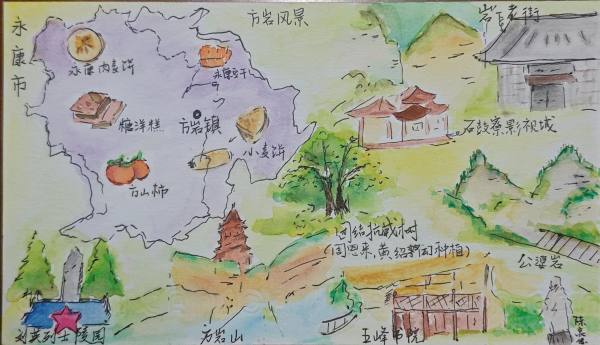 永康市
方岩风景
岩下老街
永康肉麦饼
永康豆干
糖洋糕
方岩镇
小麦饼
方山柿
石鼓寮影视城
团结抗战树
(周恩来,黄绍竑初种植)
公婆岩
刘英烈士陵园
方岩山
五峰书院